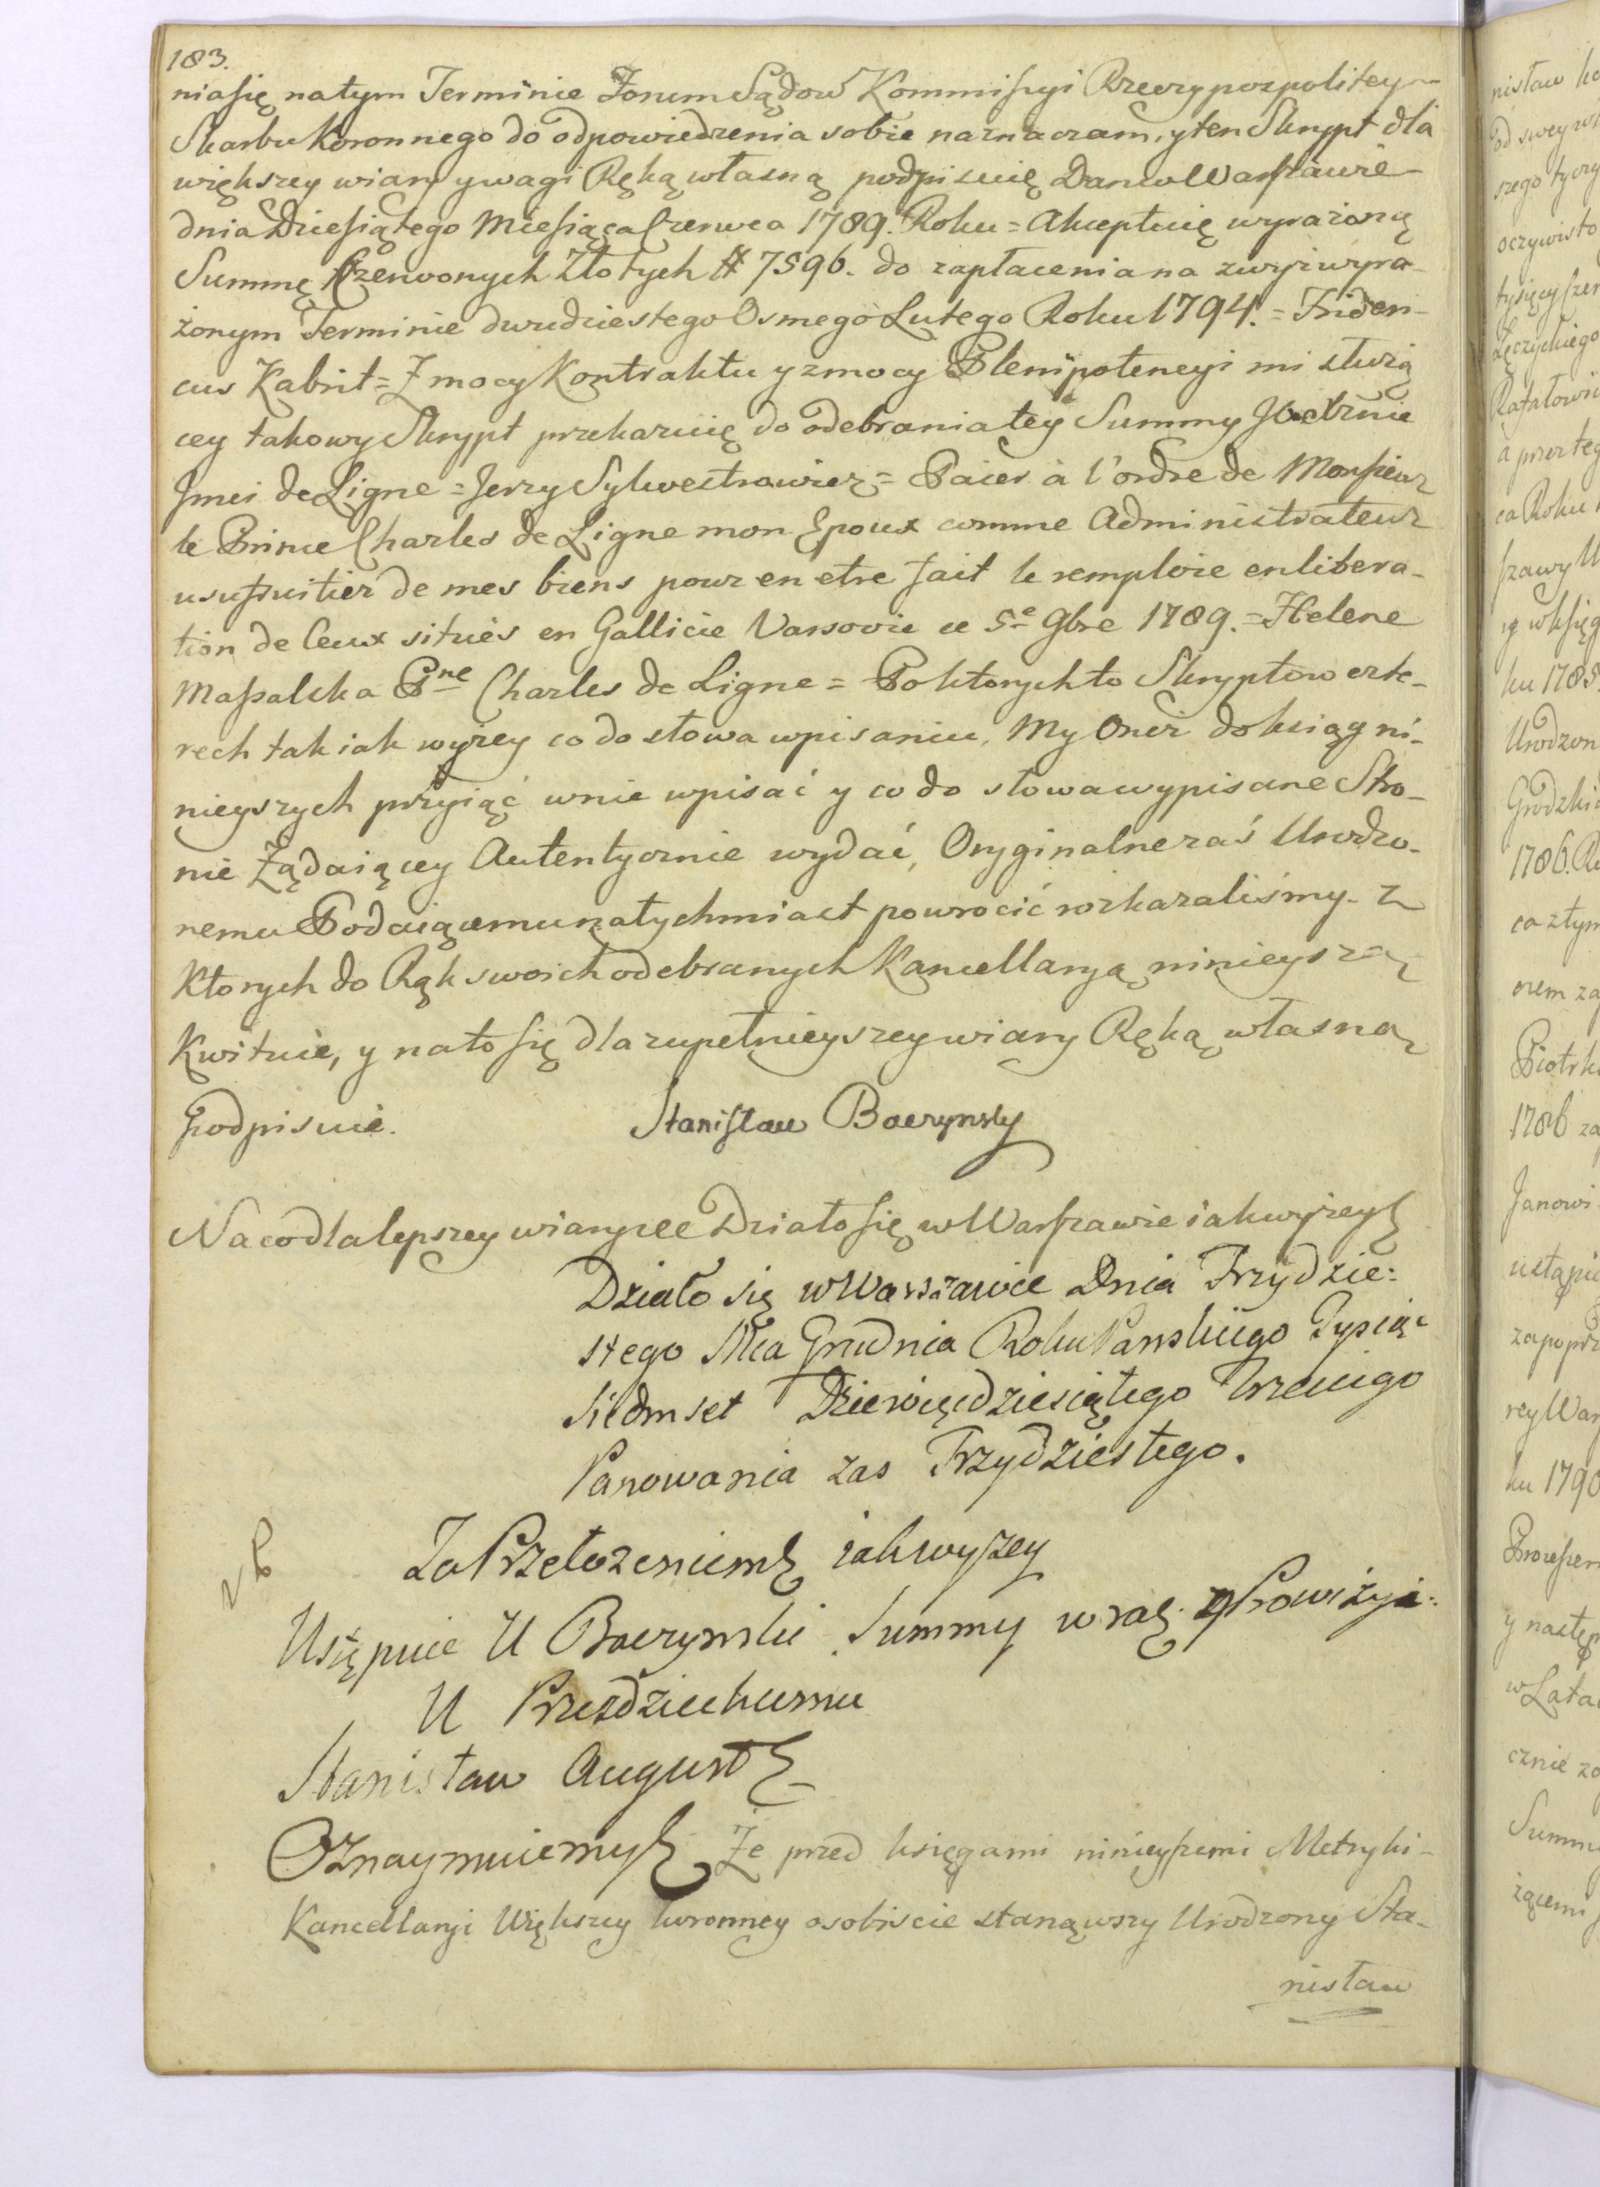 183.
nia się na tym Terminie Forum Sądow Kommissyi Rzeczypospolitey
Skarbu Koronnego do odpowiedzenia sobie naznaczam, y ten Skrypt dla
większey wiary y wagi Ręką własną podpisuię Dan w Warszawie
dnia Dziesiątego Miesiąca Czerwca 1789. Roku = Akceptuię wyrażoną
Summę Czerwonych Złotych # 7596. do zapłacenia na zwyż wyra-
żonym Terminie dwudziestego Osmego Lutego Roku 1794. = Frideri-
cus Kabrit = Z mocy Kontraktu y z mocy Plenipotencyi mi służą
cey takowy Skrypt przekazuię do odebrania tey Summy JO Xżnie
Jmci de Ligne = Jerzy Sylwestrowicz = Paier à l'ordre de Monsieur
le Prince Charles de Ligne mon Epoux comme Administrateur
usufruitier de mes biens pour en etre fait le remploie en libera-
tion de Ceux situés en Gallicie Varsovie ce 5e 9bre 1789. = Helene
Massalska Pne Charles de Ligne = Po ktorych to Skryptow czte-
rech tak iak wyżey co do słowa wpisaniu, My Oneż do ksiąg ni-
nieyszych przyiąć w nie wpisać y co do słowa wypisane Stro-
nie Żądaiącey Autentycznie wydać, Oryginalne zaś Urodzo-
nemu Podaiącemu natychmiast powrocić rozkazaliśmy. Z
Ktorych do Rąk swoich odebranych Kancellaryą ninieyszą
Kwituie, y na to się dla zupełnieyszey wiary Ręką własną
Podpisuie. Stanisław Boczynsky
Na co dla lepszey wiary &c Działo się w Warszawie iak wyżey
Działo się w Warszawie Dnia Trzydzie:
stego Mca Grudnia Roku Panskiego Tysiąc
Siedmset Dziewięćdziesiątego Trzeciego
Panowania zas Trzydziestego.
Za Przełożeniem iak wyszey
Ustępuie U Boczynski Summy wraz z Prowizyi:
U Przezdzieckiemu
Stanisław August
Oznaymuiemy Że przed księgami ninieyszemi Metryki
Kancellaryi Większey koronney osobiscie stanąwszy Urodzony Sta-
nisław